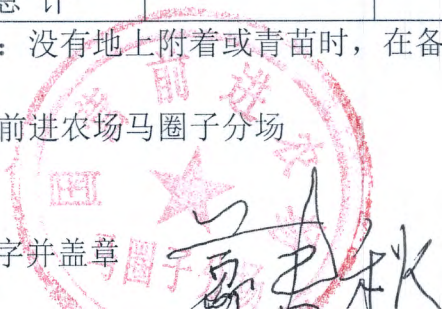 总 计
：没有地上附着或青苗时，在备
前进农场马圈子分场
字并盖章
前进农
马圈子